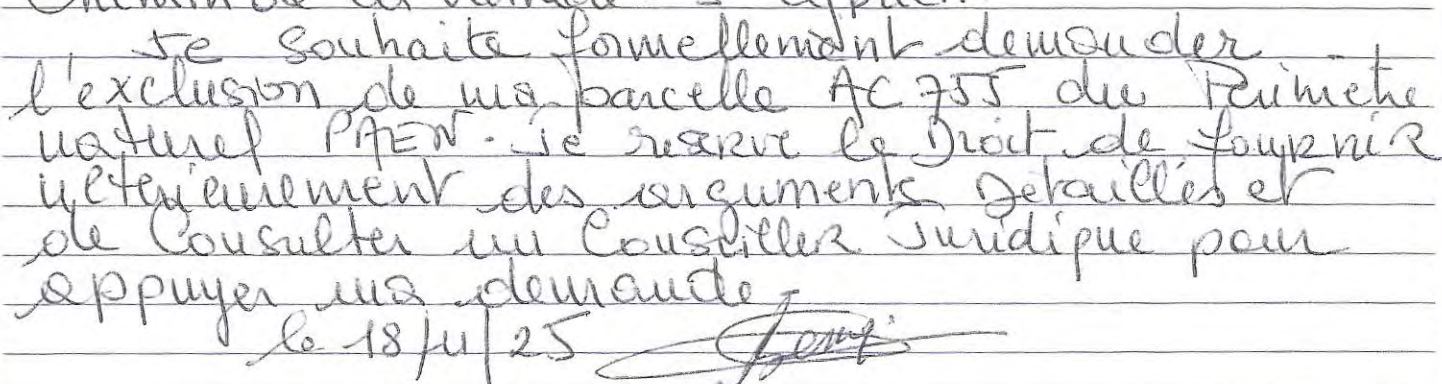 Je souhaite formellement demander
l'exclusion de ma parcelle AC 755 du Périmètre
naturel PAEN. Je reserve le Droit de fournir
ultérieurement des arguments Détaillés et
de Consulter un Conseiller Juridique pour
appuyer ma demande.
le 18/11/25